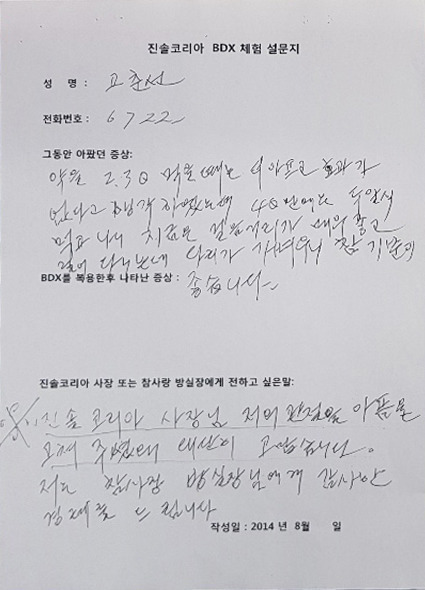 진솔코리아 BDX 체험 설문지
성 명 : 고춘선
전화번호 : 6722
그동안 아팠던 증상:
약을 2.3일 먹을때는 더 아프고 효과가
없다고 생각 하였는데 4일만에는 두알식
먹고 나니 치금은 걸음거리가 매우 좋고
걸어 다니는데 다리가 가벼우니 참 기분이
BDX를 복용한후 나타난 증상 : 좋습니다
진솔코리아 사장 또는 참사랑 방실장에게 전하고 싶은말:
진솔 코리아 사장님 저의 관절을 아픔을
고쳐 주셨는데 대단이 고맙습니다.
저는 참사랑 방실장님에게 감사한
드립니다
작성일 : 2014 년 8월 일